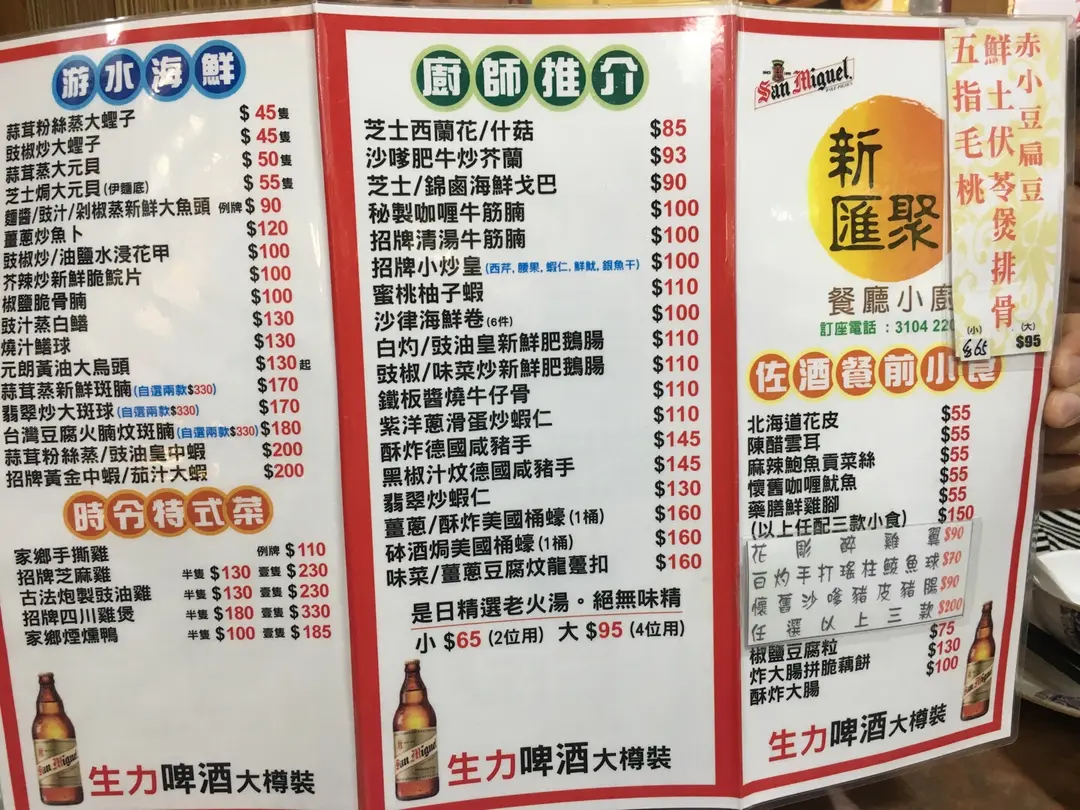 游水海鮮
蒜茸粉絲蒸大蟶子 $45隻
豉椒炒大蟶子 $45隻
蒜茸蒸大元貝 $50隻
芝士焗大元貝(伊麵底) $55隻
麵醬/豉汁/剁椒蒸新鮮大魚頭 例牌 $90
薑蔥炒魚卜 $120
豉椒炒/油鹽水浸花甲 $100
芥辣炒新鮮脆鯇片 $100
椒鹽脆骨腩 $100
豉汁蒸白鱔 $130
燒汁鱔球 $130
元朗黃油大烏頭 $130起
蒜茸蒸新鮮斑腩(自選兩款$330) $170
翡翠炒大斑球(自選兩款$330) $170
台灣豆腐火腩炆斑腩(自選兩款$330) $180
蒜茸粉絲蒸/豉油皇中蝦 $200
招牌黃金中蝦/茄汁大蝦 $200
時令特式菜
家鄉手撕雞 例牌 $110
招牌芝麻雞 半隻 $130 壹隻 $230
古法炮製豉油雞 半隻 $130 壹隻 $230
招牌四川雞煲 半隻 $180 壹隻 $330
家鄉煙燻鴨 半隻 $100 壹隻 $185
San Miguel
生力啤酒大樽裝
廚師推介
芝士西蘭花/什菇 $85
沙嗲肥牛炒芥蘭 $93
芝士/錦鹵海鮮戈巴 $90
秘製咖喱牛筋腩 $100
招牌清湯牛筋腩 $100
招牌小炒皇(西芹, 腰果, 蝦仁, 鮮魷, 銀魚干) $100
蜜桃柚子蝦 $110
沙律海鮮卷(6件) $100
白灼/豉油皇新鮮肥鵝腸 $110
豉椒/味菜炒新鮮肥鵝腸 $110
鐵板醬燒牛仔骨 $110
紫洋蔥滑蛋炒蝦仁 $110
酥炸德國咸豬手 $145
黑椒汁炆德國咸豬手 $145
翡翠炒蝦仁 $130
薑蔥/酥炸美國桶蠔(1桶) $160
砵酒焗美國桶蠔(1桶) $160
味菜/薑蔥豆腐炆龍躉扣 $160
是日精選老火湯。絕無味精
小 $65 (2位用) 大 $95 (4位用)
San Miguel
生力啤酒大樽裝
San Miguel
新匯聚
餐廳小廚
訂座電話 : 3104 220
赤小豆扁豆
鮮土伏苓煲排骨
五指毛桃
(小) $65 (大) $95
佐酒餐前小食
北海道花皮 $55
陳醋雲耳 $55
麻辣鮑魚貢菜絲 $55
懷舊咖喱魷魚 $55
藥膳鮮雞腳 $55
(以上任配三款小食) $150
花彫醉雞翼 $90
白灼手打瑤柱鯪魚球 $70
懷舊沙嗲豬皮豬腸 $90
任選以上三款 $200
椒鹽豆腐粒 $75
炸大腸拼脆藕餅 $130
酥炸大腸 $100
生力啤酒大樽裝